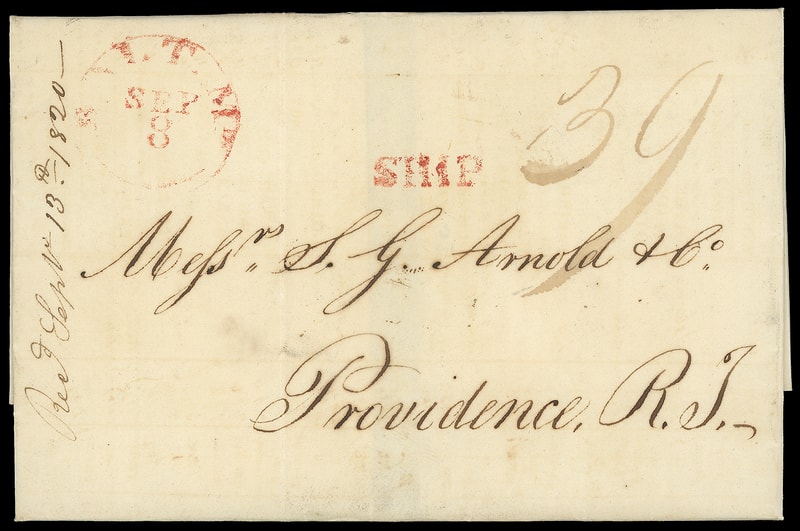 SEP
8
SHIP
39
Messrs. S. G. Arnold & Co.
Providence, R. I.
Recd Sepr 13th 1820